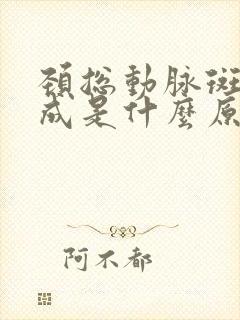 頸總動脉斑
成是什麼原
阿不都